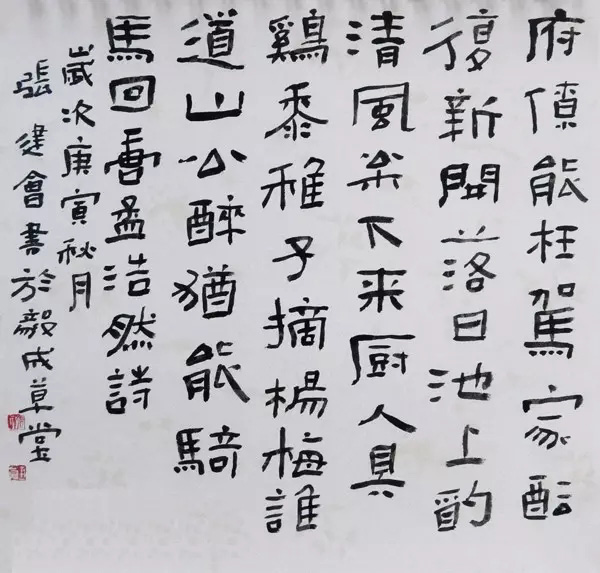 府僚能枉駕家醖
復新開落日池上酌
清風枀下来厨人具
鷄黍稚子摘楊梅誰
道山公醉猶能騎
馬回書孟浩然詩
歲次庚寅秋月
張建會書於毅成草堂